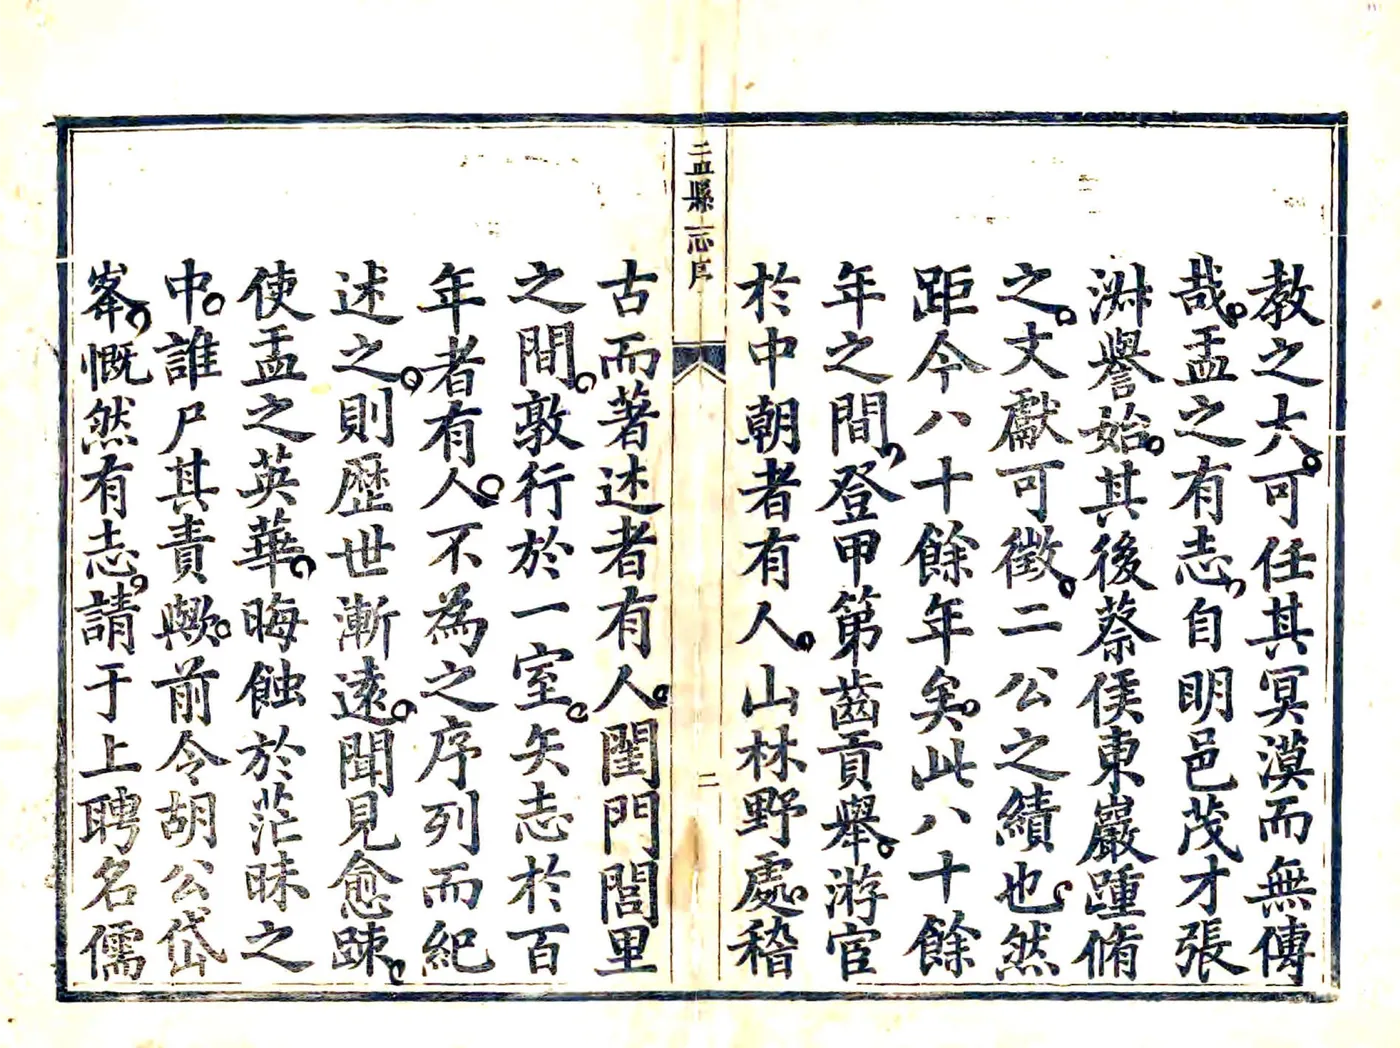 教之大可任其冥漠而無傳
哉盂之有志自明邑茂才張
淵譽始其後蔡侯東巖踵脩
之文獻可徵二公之績也然
距今八十餘年矣此八十餘
年之間登甲第齒貢舉游宦
於中朝者有人山林野處稽
盂縣志序
二
古而著述者有人閨門閭里
之間敦行於一室矢志於百
年者有人不為之序列而紀
述之則歷世漸遠聞見愈踈
使盂之英華晦蝕於茫昧之
中誰尸其責歟前令胡公岱
峯慨然有志請于上聘名儒